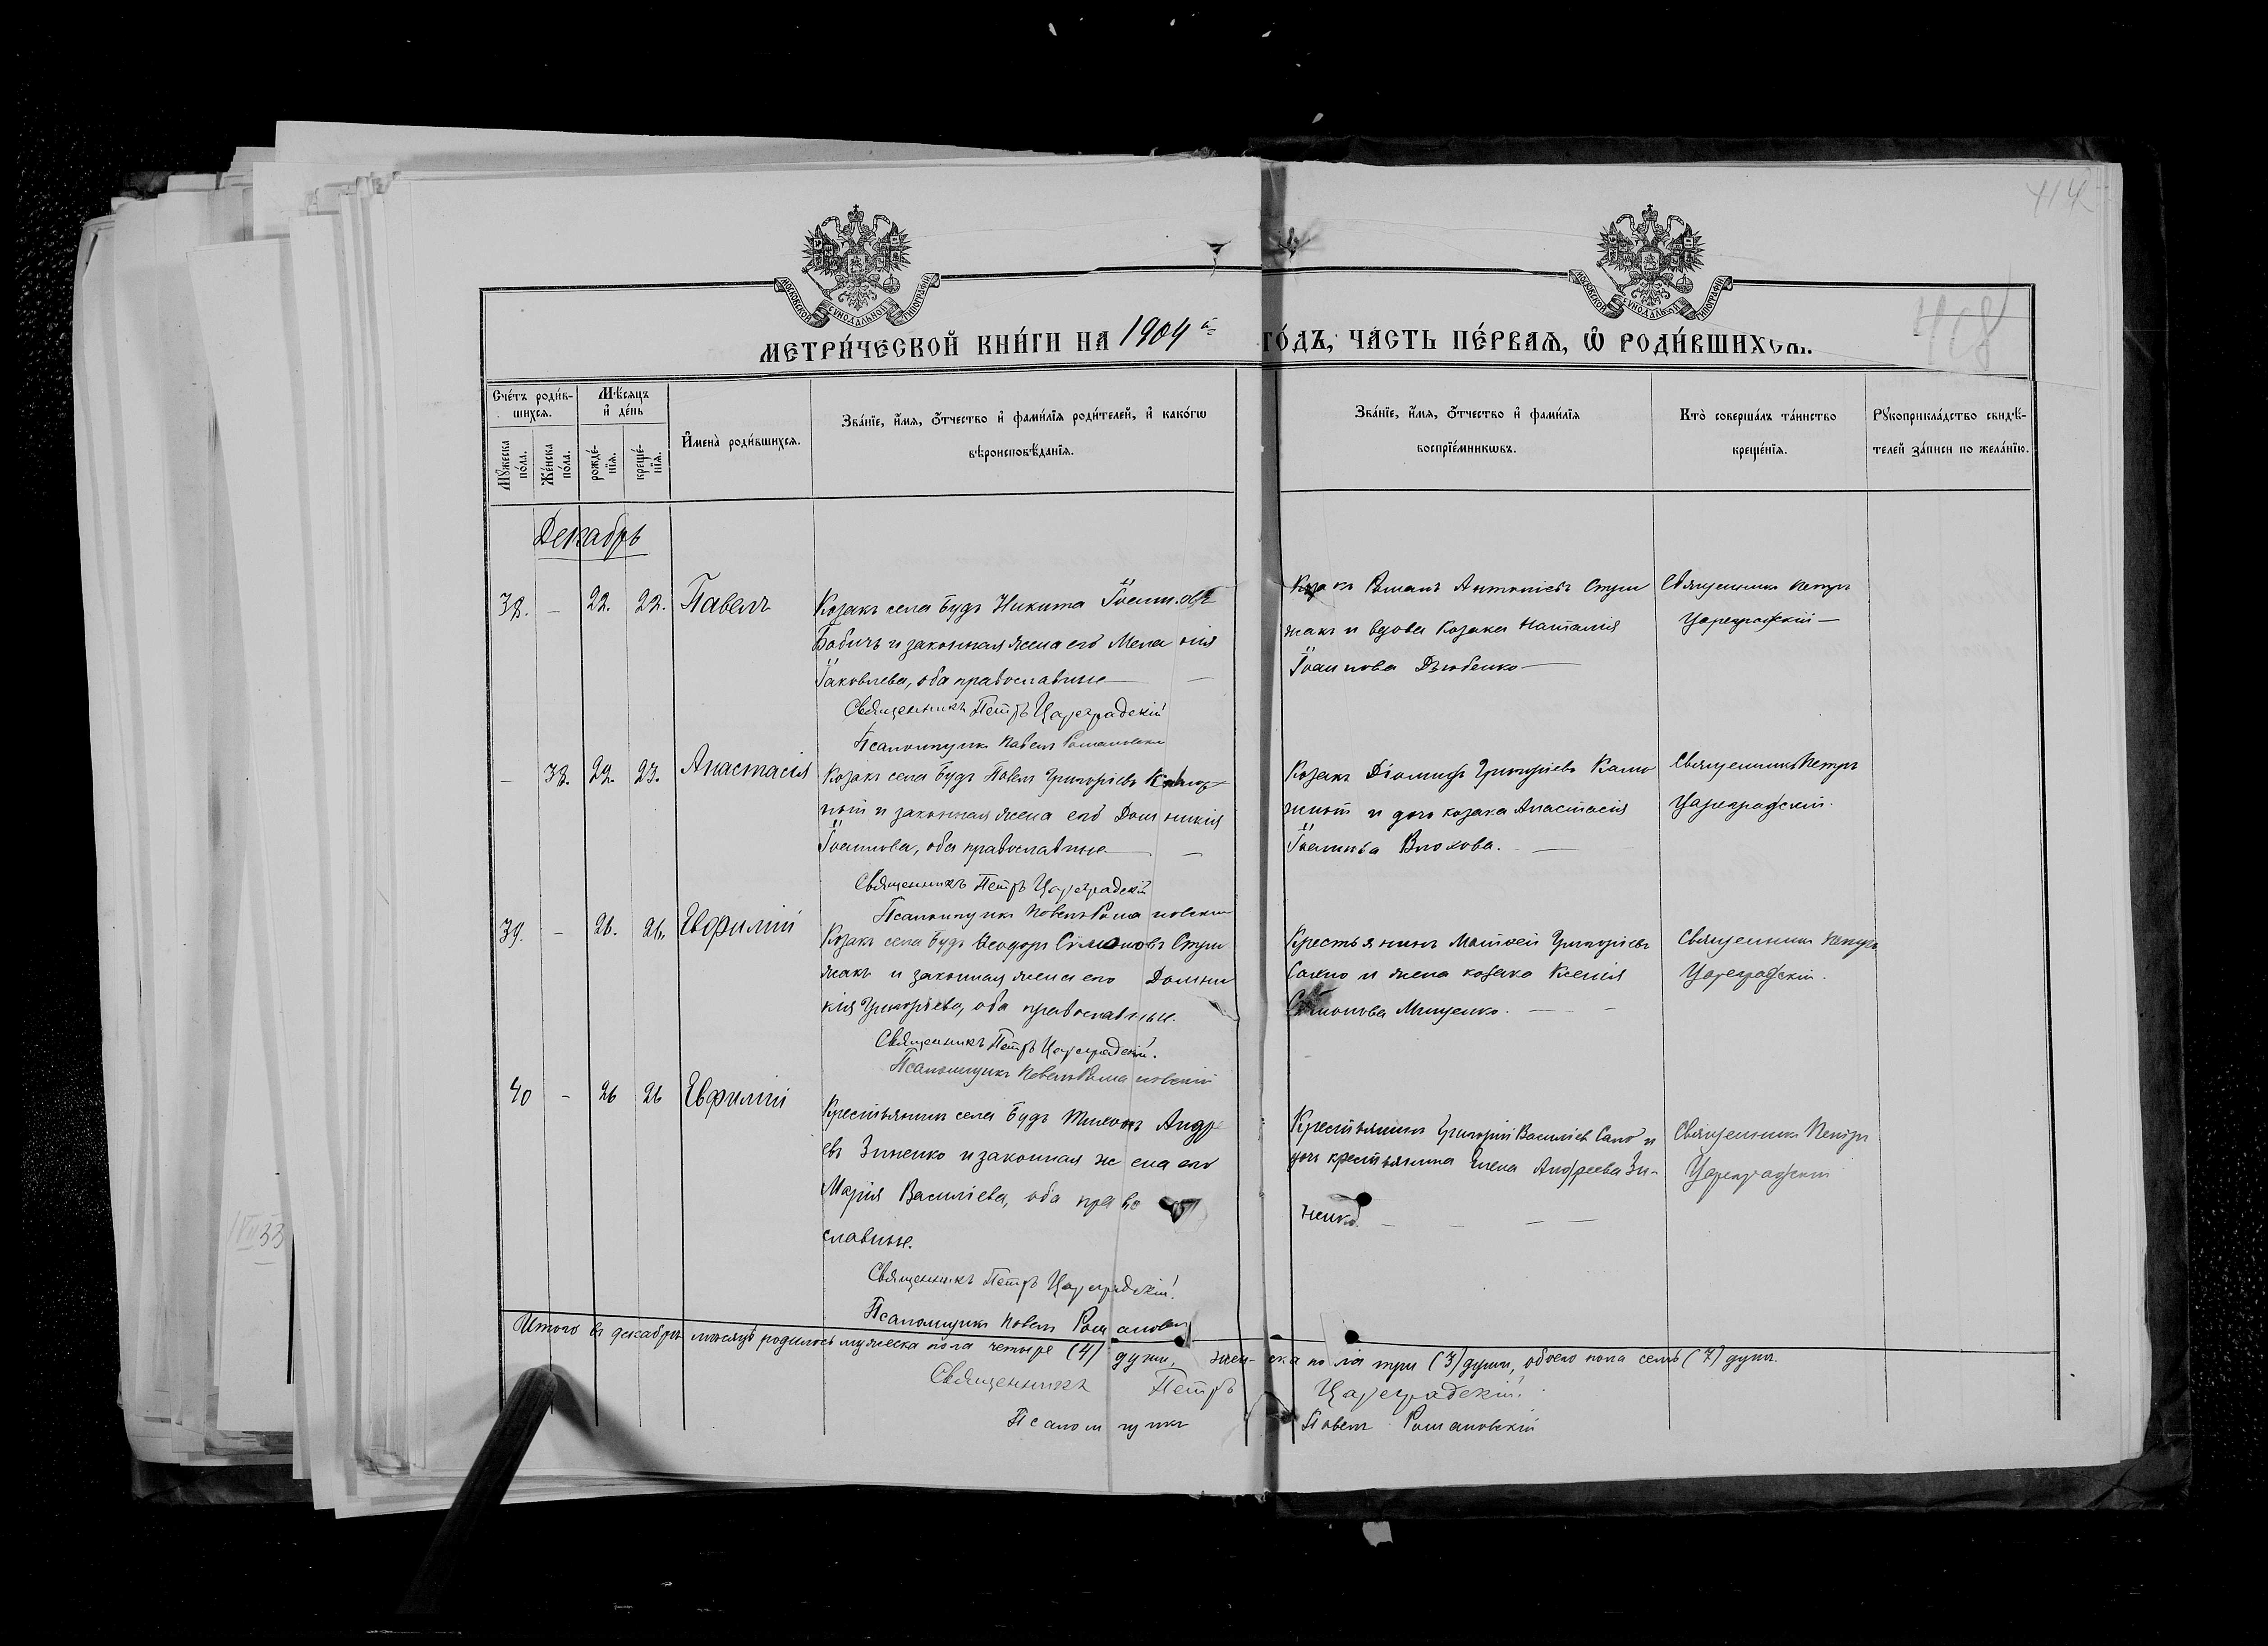 МОСКОВСКОЙ СѴНОДАЛЬНОЙ ТИПОГРАФІИ
МОСКОВСКОЙ СѴНОДАЛЬНОЙ ТИПОГРАФІИ
414
408
МЕТРИ́ЧЕСКОЙ КНИ́ГИ НА 1904 й ГО́ДЪ, ЧА́СТЬ ПЕ́РВАѦ, Ѡ РОДИ́ВШИХСѦ.
Сче́тъ роди́в-
шихся.
Мꙋ́жеска по́ла.
Же́нска по́ла.
Мѣ́сяцъ и҆ де́нь
рожде́-
нїя.
креще́-
нїя.
И҆мена̀ роди́вшихся.
Зва́нїе, и҆́мя, ѻ҆́тчество и҆ фами́лїя роди́телей, и҆ како́гѡ
вѣ̀роисповѣ́данїя.
Зва́нїе, и҆́мя, ѻ҆́тчество и҆ фами́лїя
воспрїе́мникѡвъ.
Кто̀ соверша́лъ та́инство
креще́нїя.
Рꙋкоприкла́дство свидѣ́-
телей за́писи по жела́нїю.
Декабрь
38. – 22. 22. Павелъ
Козакъ села Будъ Никита Іоанновъ
Бабичъ и законная жена его Мелания
Іаковлева, оба православные
Священникъ Петръ Цареградскій
Псаломщикъ Павелъ Романовскій
Козакъ Романъ Антоніевъ Стри
жакъ и вдова козака Наталія
Іоаннова Дзюбенко
Священникъ Петръ
Цареградскій
– 38. 22. 23. Анастасія
Козакъ села Будъ Павелъ Григоріевъ
и законная жена его Домникія
Іоаннова, оба православные
Священникъ Петръ Цареградскій
Псаломщикъ Павелъ Романовскій
Козакъ Діомидъ Григоріевъ
и дочь козака Анастасія
Іоаннова Влохова.
Священникъ Петръ
Цареградскій.
39. – 26. 26. Евфимій
Козакъ села Будъ Ѳеодоръ Сѵмоновъ Стри
жакъ и законная жена его Домни
кія Григоріева, оба православные.
Священникъ Петръ Цареградскій.
Псаломщикъ Павелъ Романовскій
Крестьянинъ Матѳей Григоріевъ
и жена козака Ксенія
Сѵмонова Мищенко.
Священникъ Петръ
Цареградскій.
40 – 26 26 Евфимій
Крестьянинъ села Будъ Тихонъ Андре
евъ Зиненко и законная жена его
Марія Василіева, оба право
славные.
Священникъ Петръ Цареградскій
Псаломщикъ Павелъ Романовскій
Крестьянинъ Григорій Василіевъ Сало и
дочь крестьянина Елена Андреева Зи-
ненко.
Священникъ Петръ
Цареградскій
Итого въ декабрѣ мѣсяцѣ родилось мужеска пола четыре (4) души, женска пола три (3) души, обоего пола семь (7) душъ.
Священникъ Петръ Цареградскій.
Псаломщикъ Павелъ Романовскій